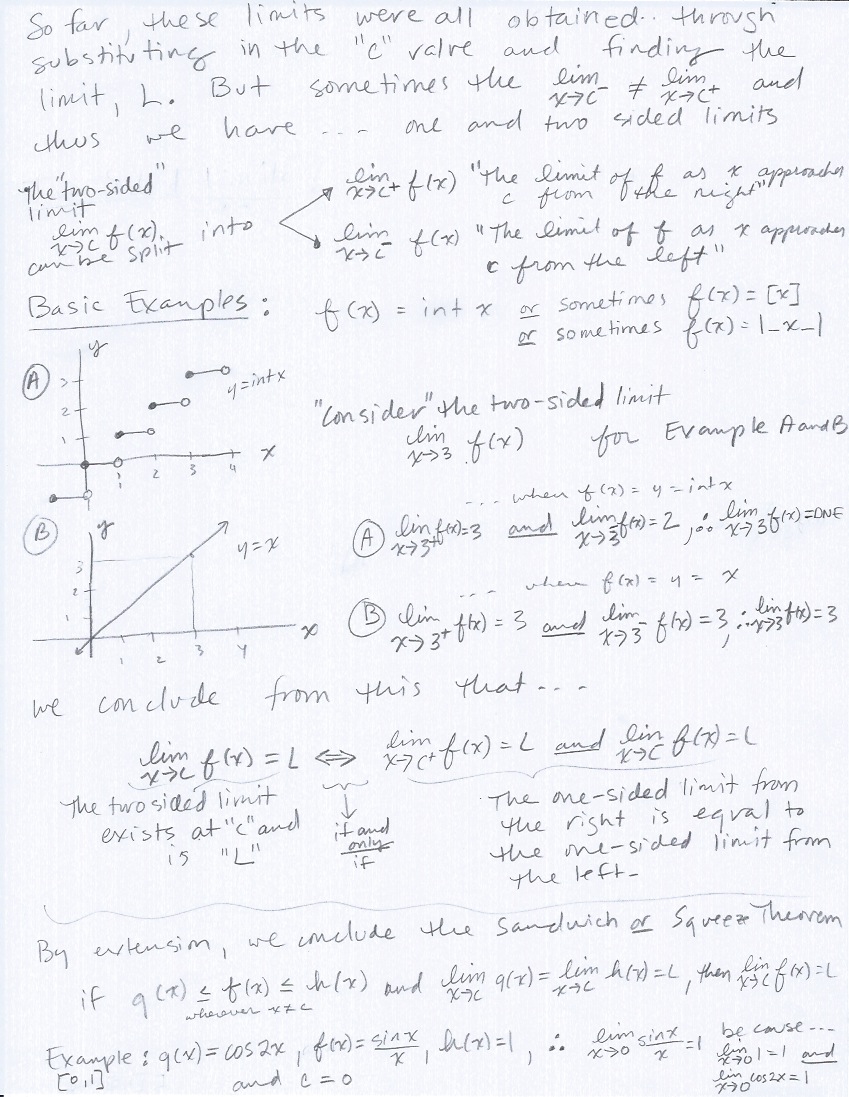 So far, these limits were all obtained.. through
substituting in the "c" value and finding the
limit, L. But sometimes the lim x→c⁻ ≠ lim x→c⁺ and
thus we have --- one and two sided limits
The "two-sided"
limit
lim x→c f(x),
can be split into
lim x→c⁺ f(x) "The limit of f as x approaches
c from the right"
lim x→c⁻ f(x) "The limit of f as x approaches
c from the left"
Basic Examples: f(x) = int x or sometimes f(x) = [x]
or sometimes f(x) = |_x_|
A
y
3
2
1
1 2 3 4
x
y=int x
"consider" the two-sided limit
lim x→3 f(x) for Example A and B
... when f(x) = y = int x
A lim x→3⁺ f(x)=3 and lim x→3⁻ f(x)=2, ∴ lim x→3 f(x)=DNE
B
y
3
2
1
1 2 3 4
x
y=x
... when f(x) = y = x
B lim x→3⁺ f(x) = 3 and lim x→3⁻ f(x) = 3, ∴ lim x→3 f(x)=3
we conclude from this that ...
lim x→c f(x) = L ⇔ lim x→c⁺ f(x) = L and lim x→c⁻ f(x) = L
The two sided limit
exists at "c" and
is "L"
if and
only
if
The one-sided limit from
the right is equal to
the one-sided limit from
the left.
By extension, we conclude the Sandwich or Squeeze Theorem
if g(x) ≤ f(x) ≤ h(x) and lim x→c g(x) = lim x→c h(x) = L, then lim x→c f(x) = L
whenever x≠c
Example: g(x) = cos 2x, f(x) = sin x / x, h(x)=1, ∴ lim x→0 sin x / x = 1 because...
[0,1] and c = 0
lim x→0 1 = 1 and
lim x→0 cos 2x = 1